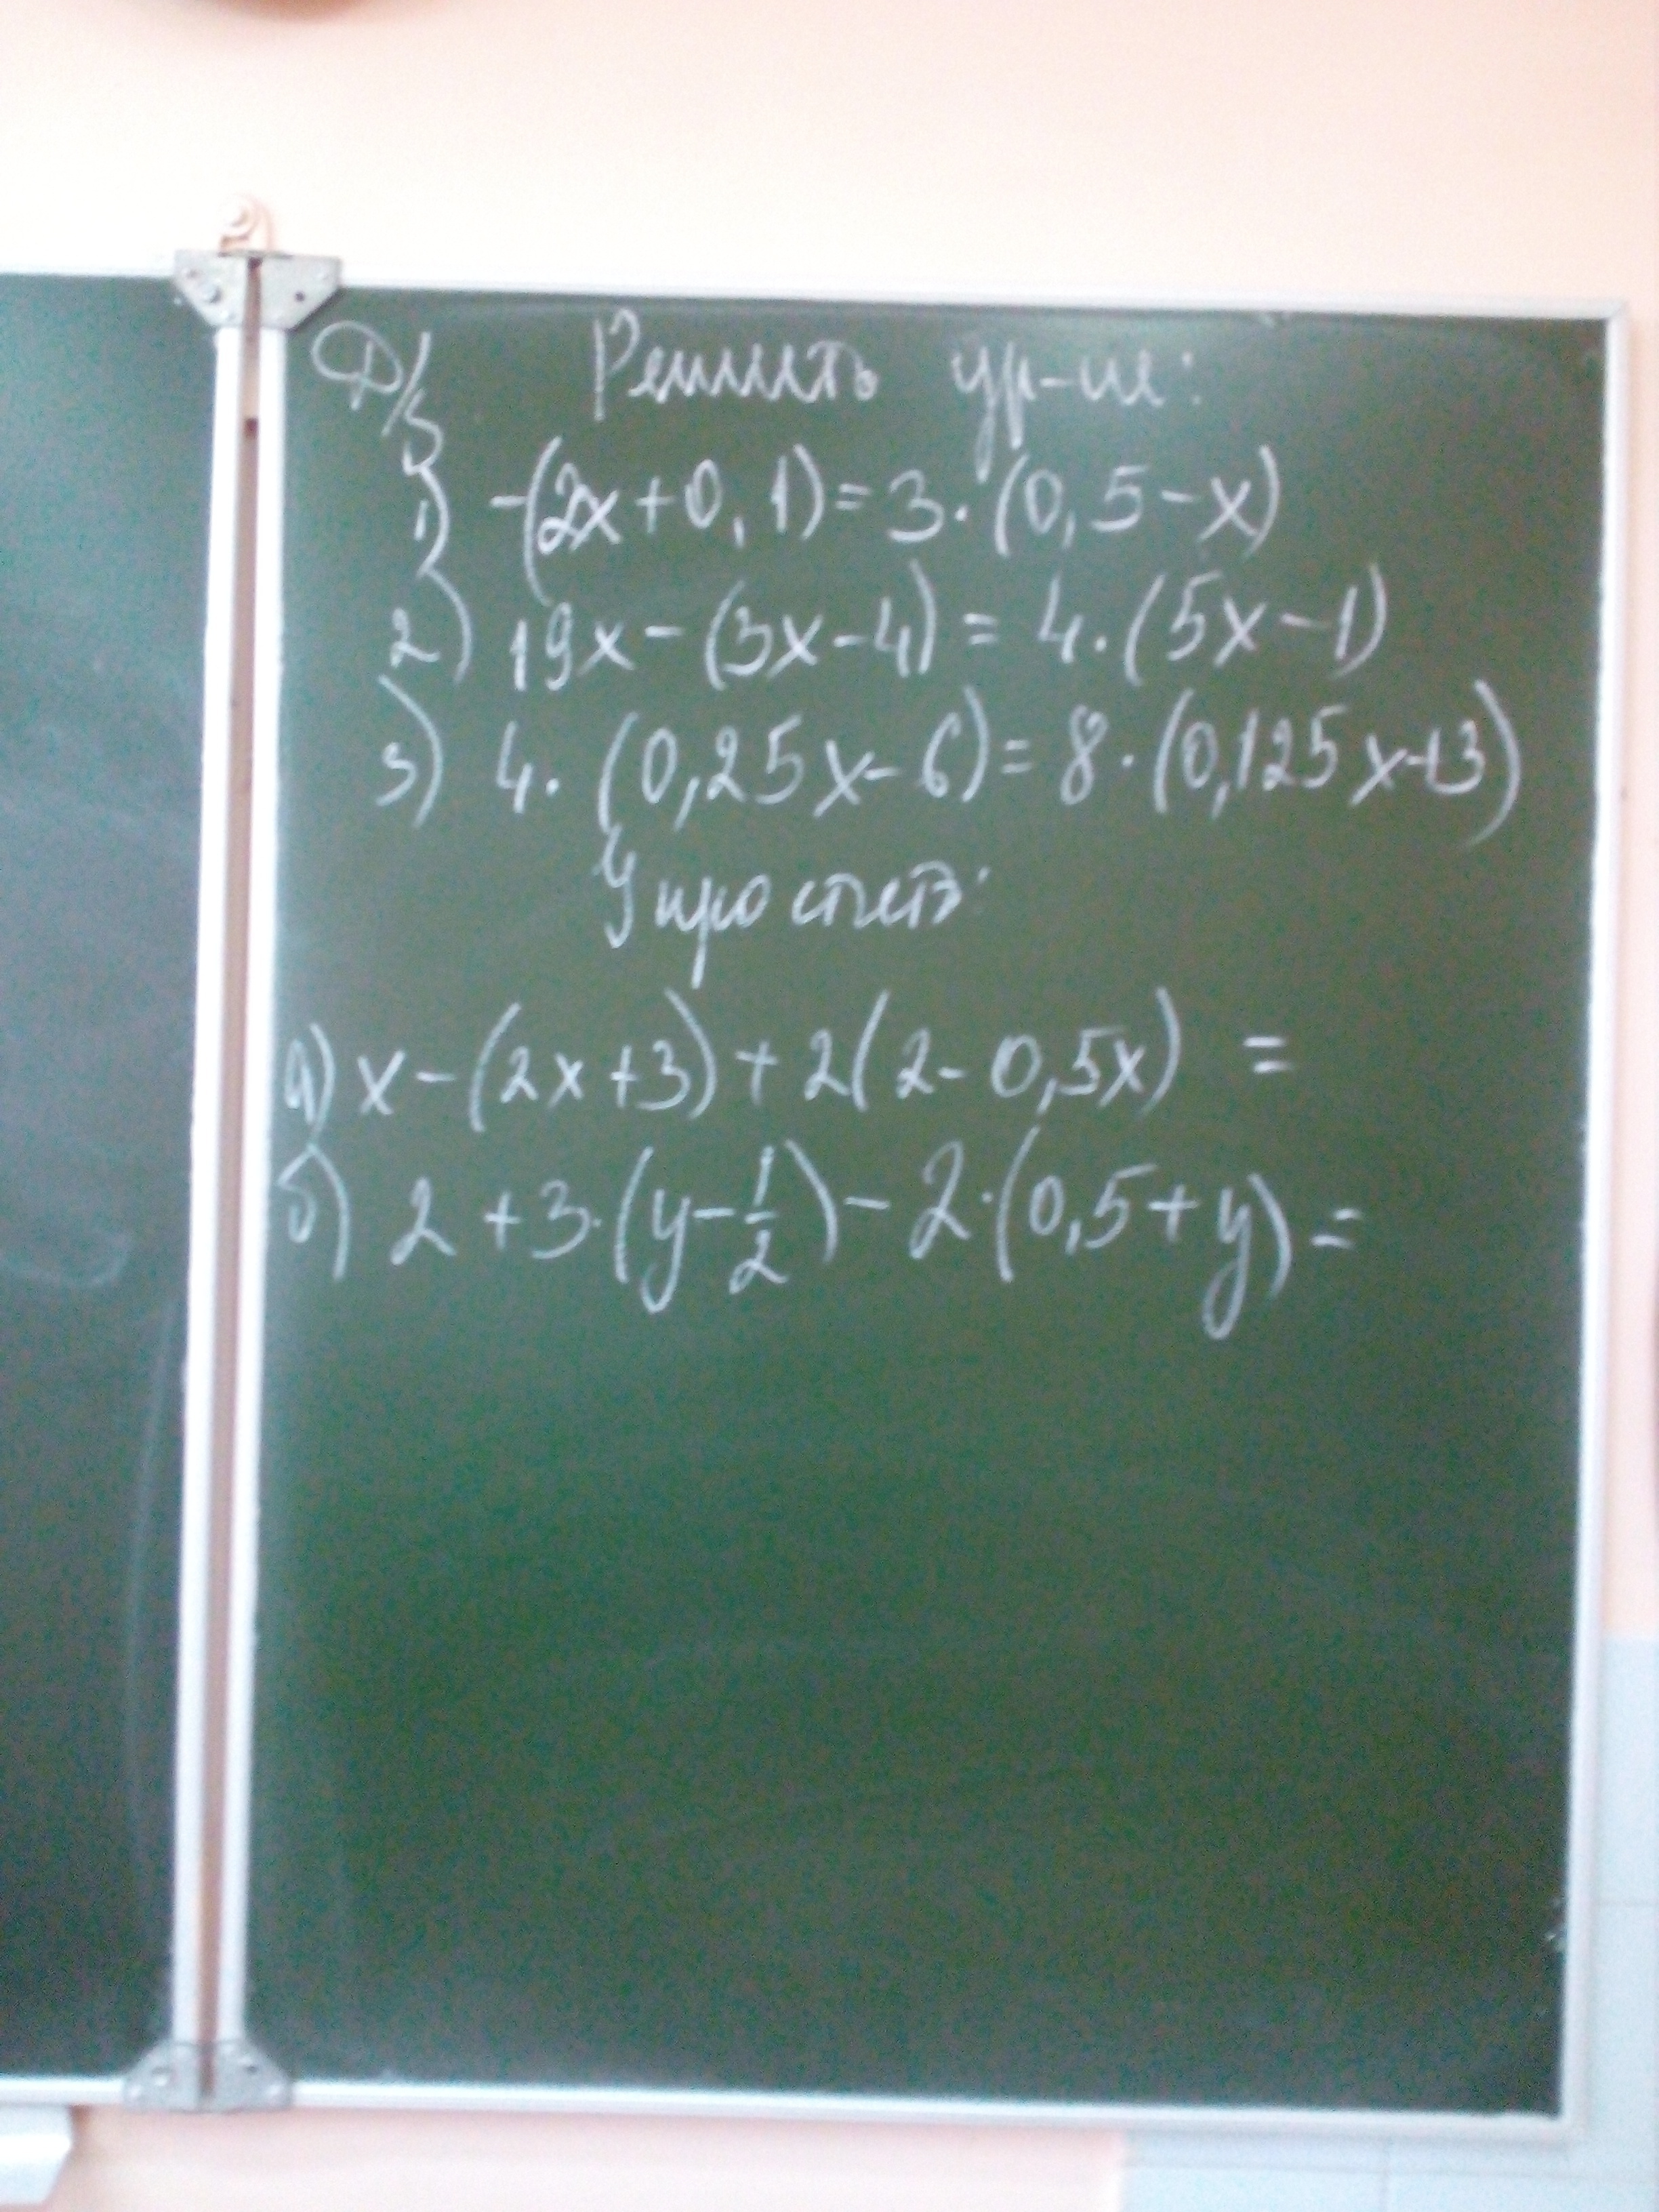 Д/з Решить ур-ие:
1) -(2x+0,1)=3·(0,5-x)
2) 19x-(3x-4)=4·(5x-1)
3) 4·(0,25x-6)=8·(0,125x+3)
Упростить:
а) x-(2x+3)+2(2-0,5x) =
б) 2+3·(y-1/2)-2·(0,5+y)=